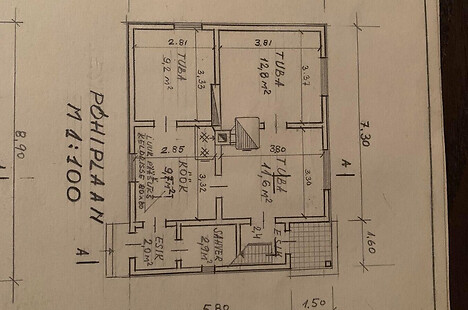 PÕHIPLAAN
M 1:100
8.90
2.81
3.81
TUBA
9,2 M²
3,33
TUBA
12,8 M²
3.37
7.30
2.85
3.80
KÖÖK
9,7 M²
3,32
TUBA
11,6 M²
3.30
LUUK PÕRAND
KELDRISSE 80x80
A
A
ESIK
2,0 M²
SAHVER
2,9 M²
ESIK
2,4
1.60
5.80
1.50